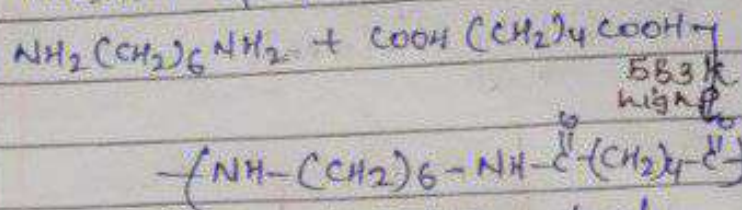 NH2 (CH2)6 NH2 + COOH (CH2)4 COOH
553 K
high P
O O
-(NH-(CH2)6-NH-C-(CH2)4-C-)